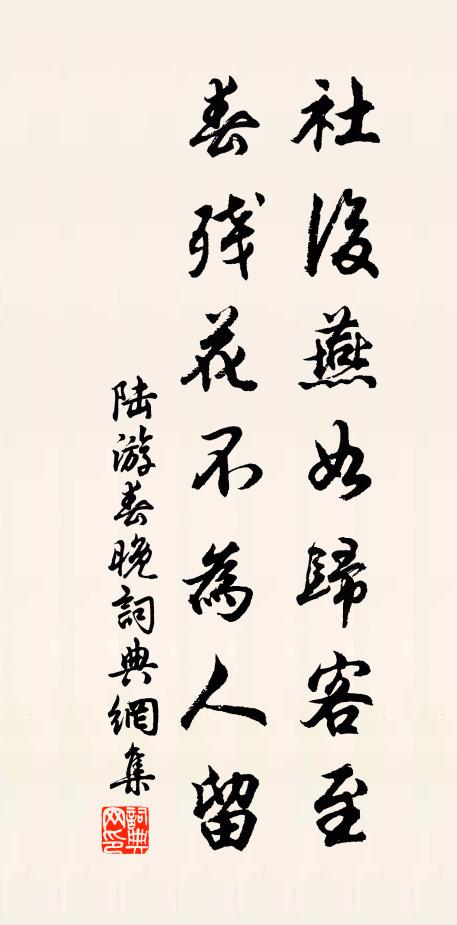 社後燕如歸客至
春殘花不為人留
陸游春晚詞典網集
詞典網印